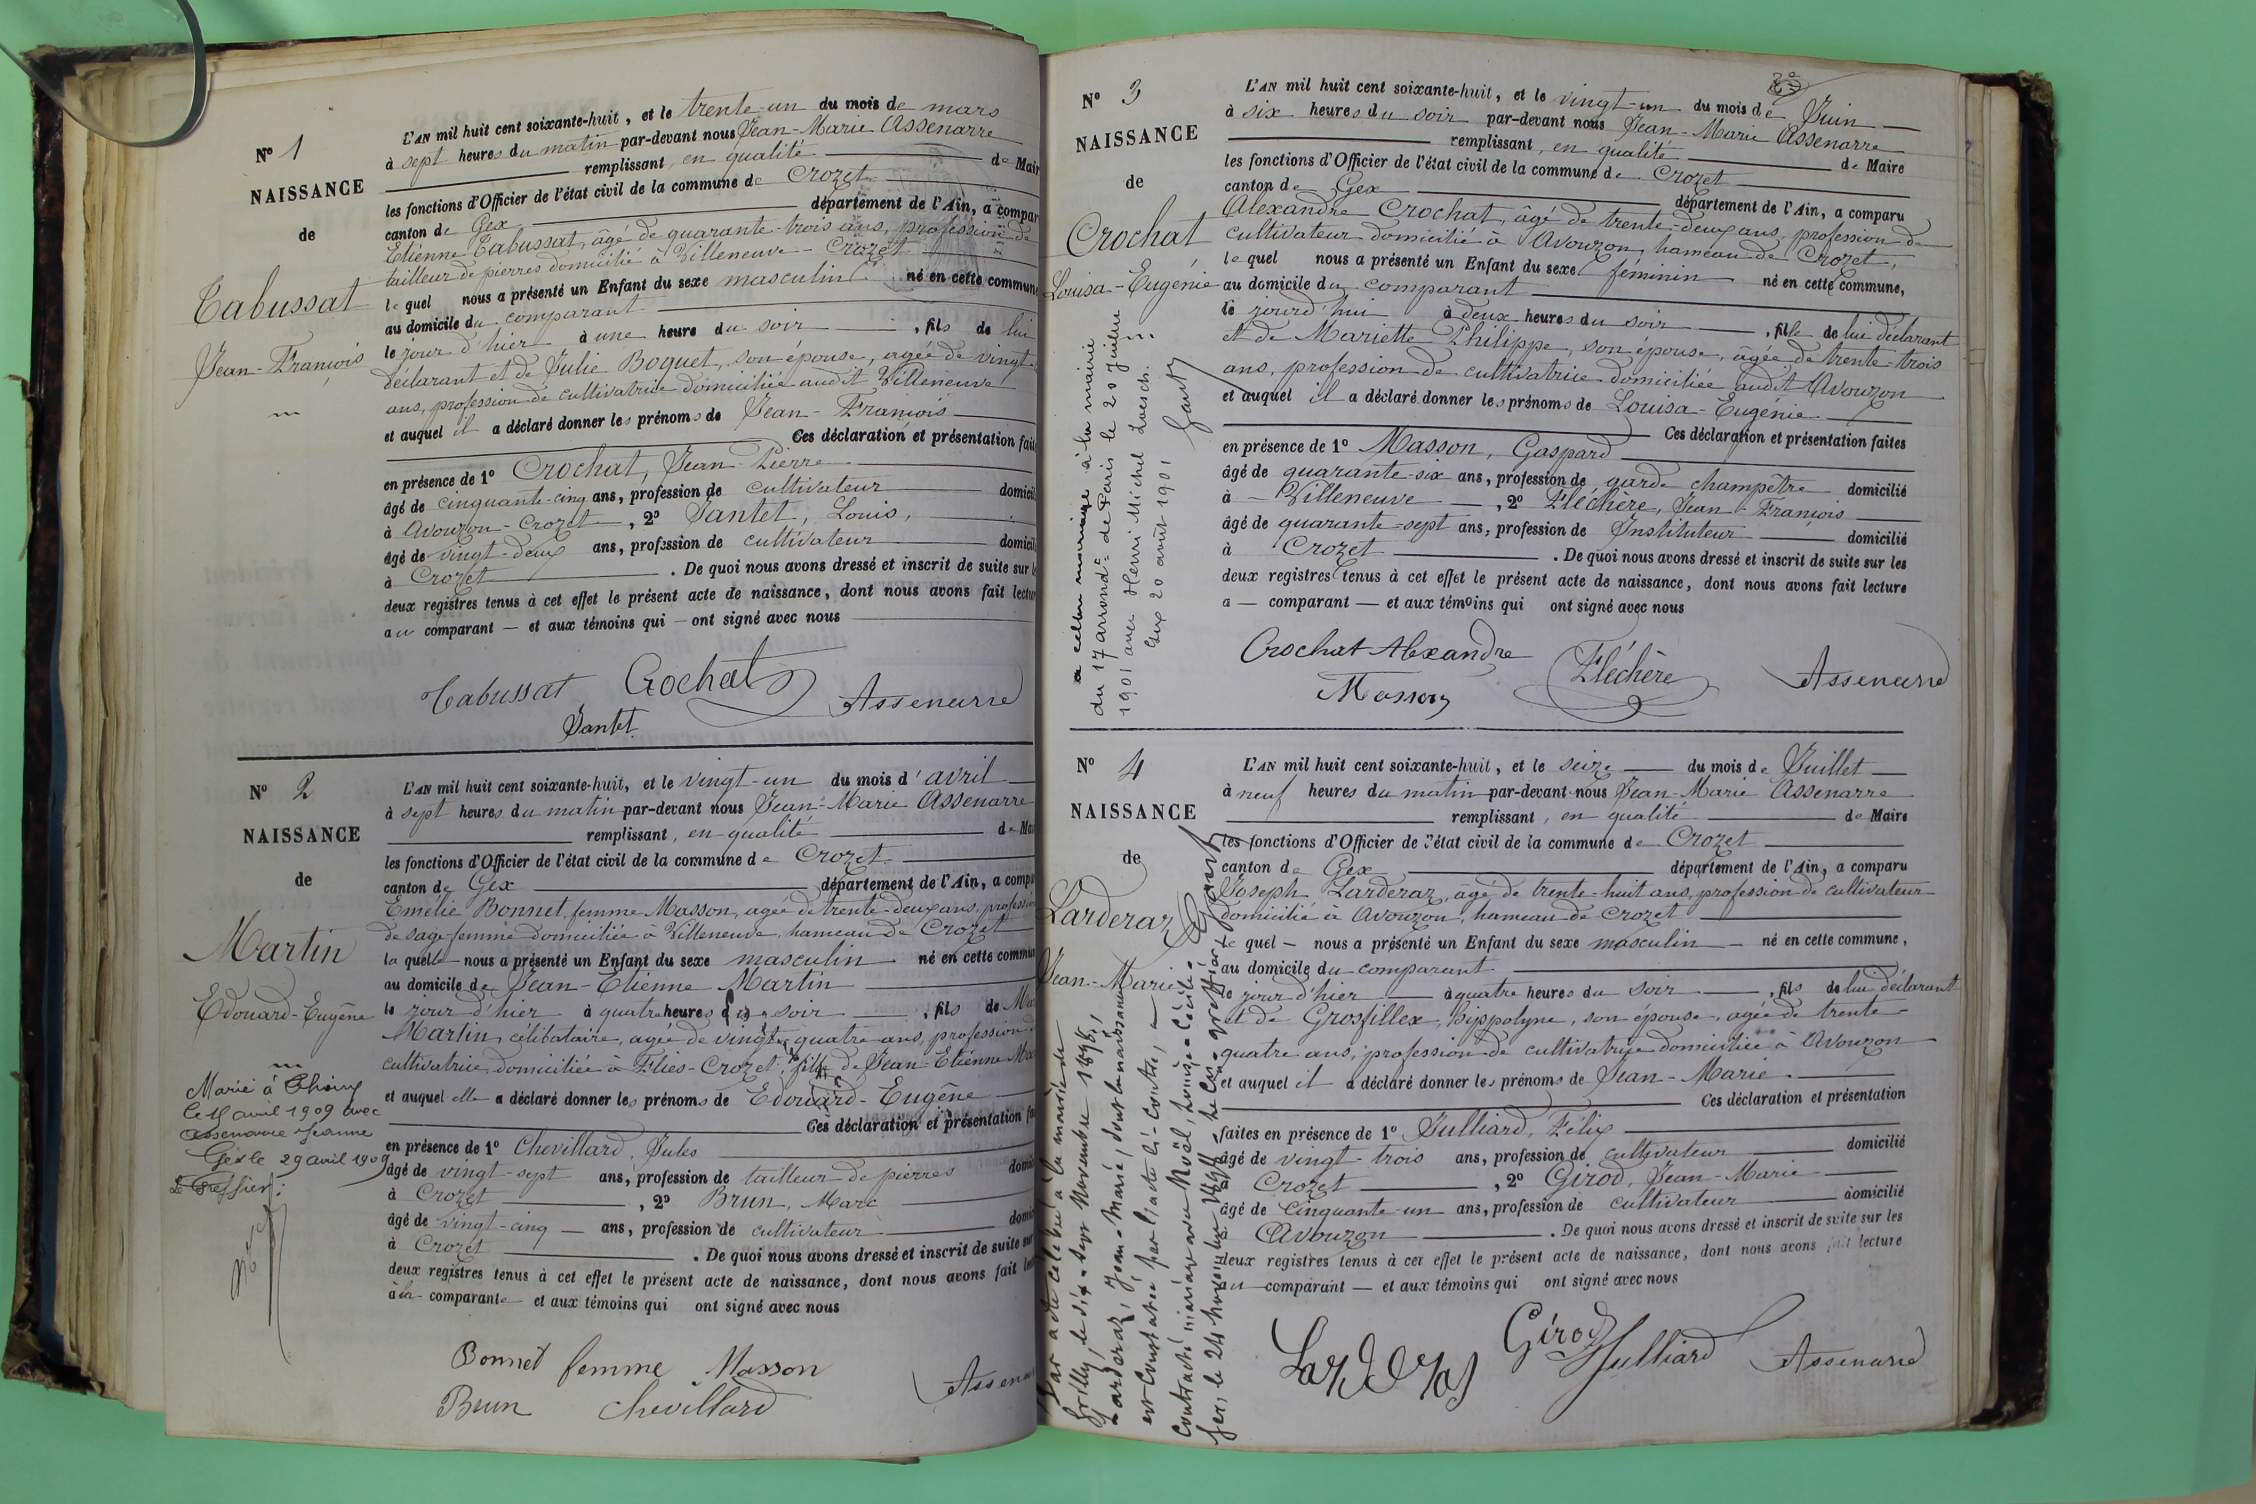 Nº 1
NAISSANCE
de
Tabussat
Jean-François
L'AN mil huit cent soixante-huit, et le trente-un du mois de mars
à sept heures du matin par-devant nous Jean-Marie Assenarre
remplissant, en qualité de Mair
les fonctions d'Officier de l'état civil de la commune de Crozet
canton de Gex département de l'Ain, a compar
Etienne Tabussat, âgé de quarante-trois ans, profession de
tailleur de pierres domicilié à Villeneuve-Crozet
le quel nous a présenté un Enfant du sexe masculin né en cette commune
au domicile du comparant
le jour d'hier à une heure du soir, fils de lui
déclarant et de Julie Boquet, son épouse, agée de vingt-
ans, profession de cultivatrice domiciliée audit Villeneuve
et auquel il a déclaré donner les prénoms de Jean-François
Ces déclaration et présentation faite
en présence de 1º Crochat, Jean Pierre
âgé de cinquante-cinq ans, profession de cultivateur domicil
à Avouzon-Crozet, 2º Jantet, Louis,
âgé de vingt-deux ans, profession de cultivateur domicil
à Crozet. De quoi nous avons dressé et inscrit de suite sur le
deux registres tenus à cet effet le présent acte de naissance, dont nous avons fait lectur
au comparant — et aux témoins qui — ont signé avec nous
Tabussat Crochat Assenarre
Jantet
Nº 2
NAISSANCE
de
Martin
Edouard-Eugène
Marié à Thoiry
le 18 avril 1909 avec
Assenarre Jeanne
Gex le 29 avril 1909
Le Greffier:
L'AN mil huit cent soixante-huit, et le vingt-un du mois d'avril
à sept heures du matin par-devant nous Jean-Marie Assenarre
remplissant, en qualité de Mai
les fonctions d'Officier de l'état civil de la commune de Crozet
canton de Gex département de l'Ain, a compa
Emélie Bonnet, femme Masson, agée de trente-deux ans, professio
de sage-femme domiciliée à Villeneuve, hameau de Crozet
la quelle nous a présenté un Enfant du sexe masculin né en cette commun
au domicile de Jean-Etienne Martin
le jour d'hier à quatre heures du soir, fils de Ma
Martin, célibataire, agée de vingt-quatre ans, profession
cultivatrice, domiciliée à Flies-Crozet, fille de Jean-Etienne Ma
et auquel elle a déclaré donner les prénoms de Edouard-Eugène
Ces déclaration et présentation fai
en présence de 1º Chevillard, Jules
âgé de vingt-sept ans, profession de tailleur de pierres domi
à Crozet, 2º Brun, Marc
âgé de vingt-cinq — ans, profession de cultivateur domi
à Crozet. De quoi nous avons dressé et inscrit de suite sur
deux registres tenus à cet effet le présent acte de naissance, dont nous avons fait lec
à la comparante et aux témoins qui ont signé avec nous
Bonnet femme Masson Assenar
Brun Chevillard
Nº 3
NAISSANCE
de
Crochat
Louisa-Eugénie
a célébré mariage à la mairie
du 17 arrondt de Paris le 20 Juillet
1901 avec Henri Michel Loesch.
Gex 20 août 1901
L'AN mil huit cent soixante-huit, et le vingt-un du mois de Juin
à six heures du soir par-devant nous Jean-Marie Assenarre
remplissant, en qualité de Maire
les fonctions d'Officier de l'état civil de la commune de Crozet
canton de Gex département de l'Ain, a comparu
Alexandre Crochat, âgé de trente-deux ans, profession de
cultivateur domicilié à Avouzon, hameau de Crozet,
le quel nous a présenté un Enfant du sexe féminin né en cette commune,
au domicile du comparant
le jourd'hui à deux heures du soir, fille de lui déclarant
et de Mariette Philippe, son épouse, âgée de trente-trois
ans, profession de cultivatrice domiciliée audit Avouzon
et auquel il a déclaré donner les prénoms de Louisa-Eugénie
Ces déclaration et présentation faites
en présence de 1º Masson, Gaspard
âgé de quarante-six ans, profession de garde champêtre domicilié
à — Villeneuve —, 2º Fléchère, Jean-François
âgé de quarante-sept ans, profession de Instituteur domicilié
à Crozet. De quoi nous avons dressé et inscrit de suite sur les
deux registres tenus à cet effet le présent acte de naissance, dont nous avons fait lecture
a — comparant — et aux témoins qui ont signé avec nous
Crochat Alexandre Fléchère Assenarre
Masson
Nº 4
NAISSANCE
de
Larderaz
Jean-Marie
Par acte célébré à la mairie de
Grilly, le dix-sept Novembre 1898,
Larderaz, Jean-Marie, dont la naissance
est constatée par l'acte ci-contre, a
contracté mariage avec Noël, Louise-Cécile.
Gex, le 24 novembre 1898. Le Greffier
L'AN mil huit cent soixante-huit, et le seize du mois de Juillet
à neuf heures du matin par-devant nous Jean-Marie Assenarre
remplissant, en qualité de Maire
les fonctions d'Officier de l'état civil de la commune de Crozet
canton de Gex département de l'Ain, a comparu
Joseph Larderaz, âgé de trente-huit ans, profession de cultivateur
domicilié à Avouzon, hameau de Crozet
le quel — nous a présenté un Enfant du sexe masculin — né en cette commune,
au domicile du comparant
le jour d'hier à quatre heures du soir, fils de lui déclarant
et de Grosfillex, hippolyne, son épouse, agée de trente-
quatre ans, profession de cultivatrice domiciliée à Avouzon
et auquel il a déclaré donner les prénoms de Jean-Marie
Ces déclaration et présentation
faites en présence de 1º Julliard, Félix
âgé de vingt-trois ans, profession de cultivateur domicilié
à Crozet, 2º Girod, Jean-Marie
âgé de cinquante-un ans, profession de cultivateur domicilié
à Avouzon. De quoi nous avons dressé et inscrit de suite sur les
deux registres tenus à cet effet le présent acte de naissance, dont nous avons fait lecture
au comparant — et aux témoins qui ont signé avec nous
Larderas Girod Julliard Assenarre